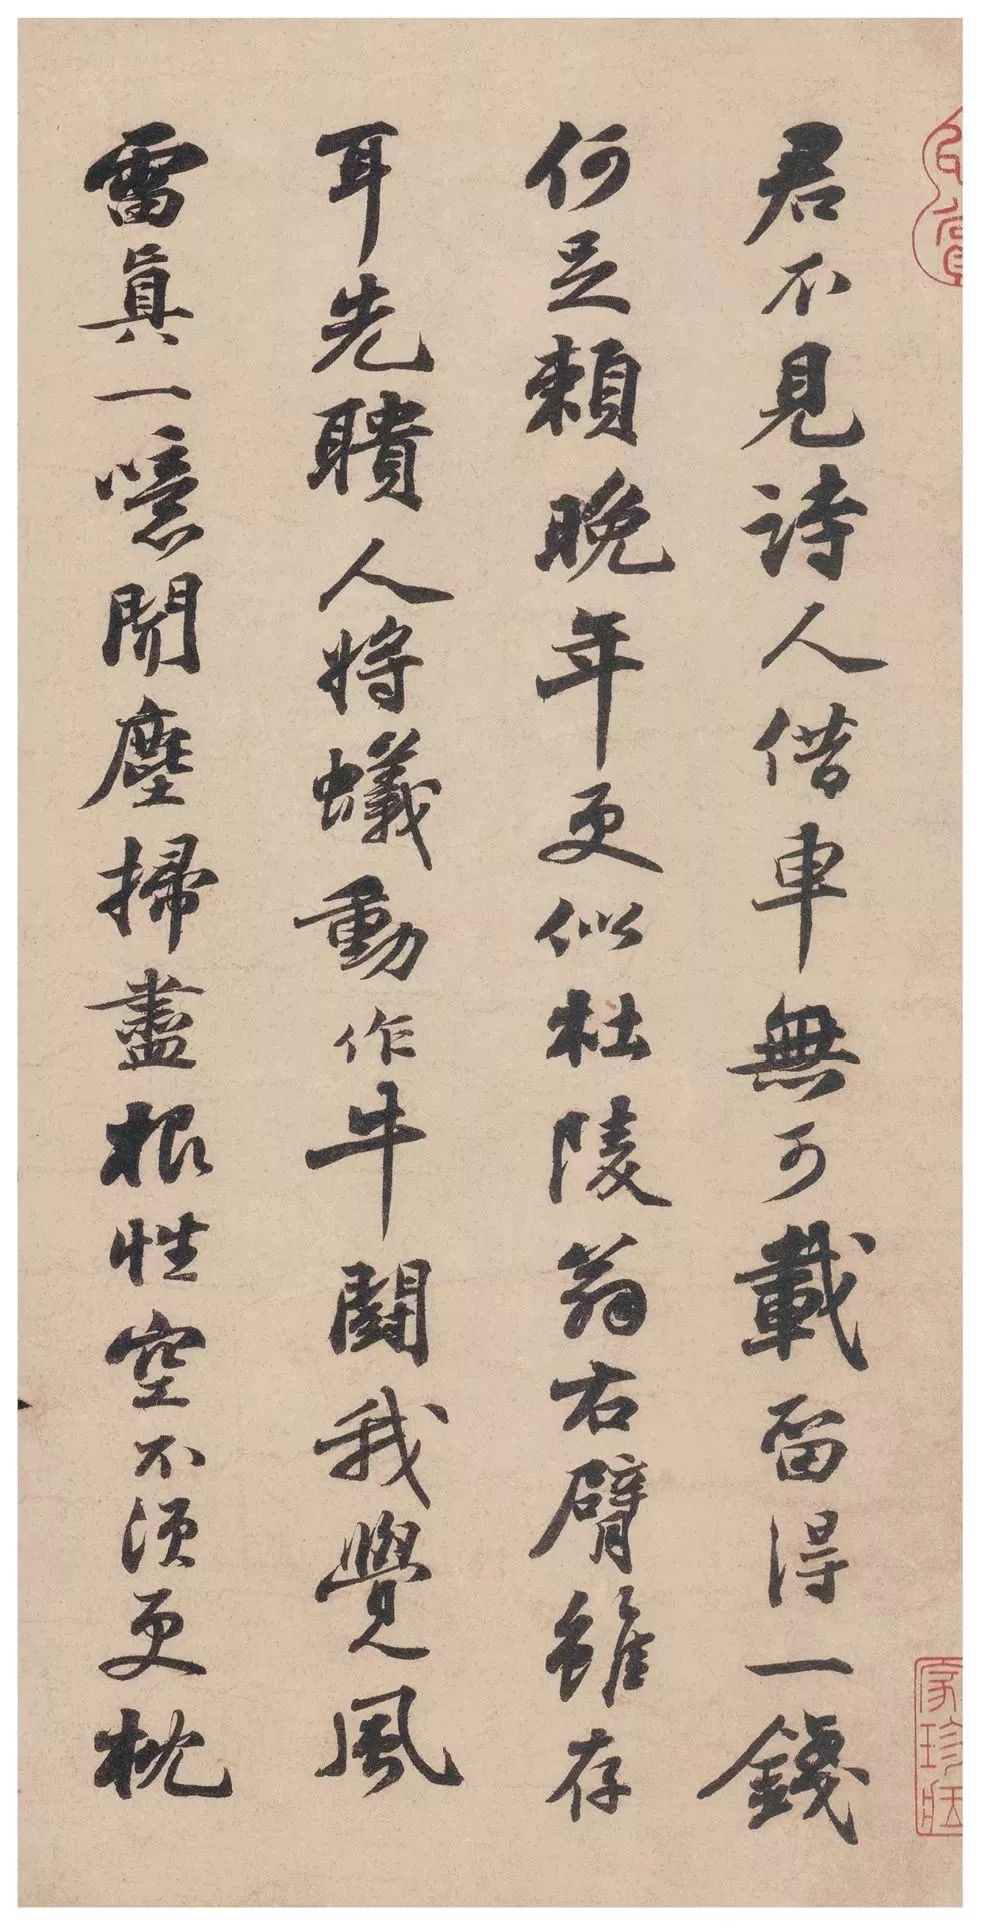 君不見詩人借車無可載留得一錢
何足賴晚年更似杜陵翁右臂雖存
耳先聵人將蟻動作牛鬭我覺風
雷真一噫聞塵掃盡根性空不須更枕